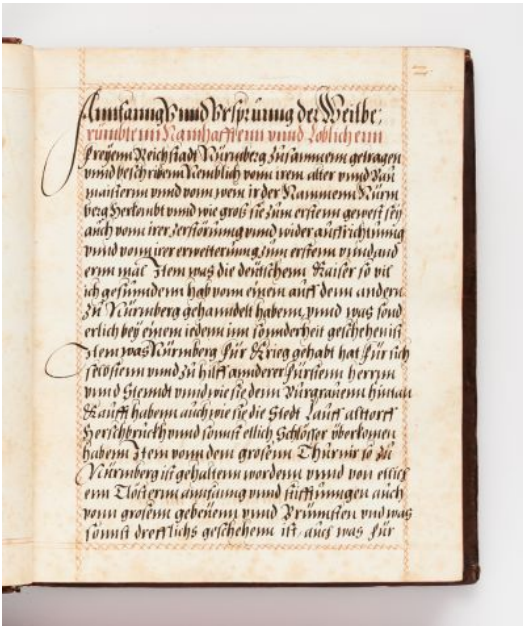 Annfanng Vnnd Vrsprünng der Weitbe,
rümbtenn Namhafftenn vnnd Loblichenn
freyenn Reichstadt Nürnberg Zusammenn getragen
vnnd beschribenn Nemblich vonn irem alter vnnd Bau
maisternn vnnd vonn wem ir der Nammenn Nürm
berg herkonbt vnnd wie groß sie zum erstenn gewest sey
auch vonn irer zerstörünng vnnd wider auffrichtünng
vnnd vonn irer erweiterünng zum erstenn vnnd and
ernn mal Item was die deütschenn Kaiser so vil
ich gefünndenn hab vonn einem auff denn andern
Zü Nürnberg gehanndelt habenn, vnnd was sond
erlich bey einem iedenn inn sonnderheit geschehenn ist
Item was Nürnberg für Krieg gehabt hat für sich
selbstenn vnnd zü hilff annderer fürstenn herrnn
vnnd Stenndt vnnd wie sie denn Burgrauenn hinttan
Kaufft habenn auch wie sie die Stedt Lauff alttorff
Herschbrückh vnnd sonnst etlich Schlösser vberkomen
habenn Item vonn dem grosenn Thürnir so zü
Nürnberg ist gehaltenn wordenn vnnd von etlich
enn Clösternn annfanng vnnd stifftünngen auch
vonn grosenn gebeüenn vnnd Brünnstenn vnd was
sonnst drefflichs geschehenn ist, auch was für